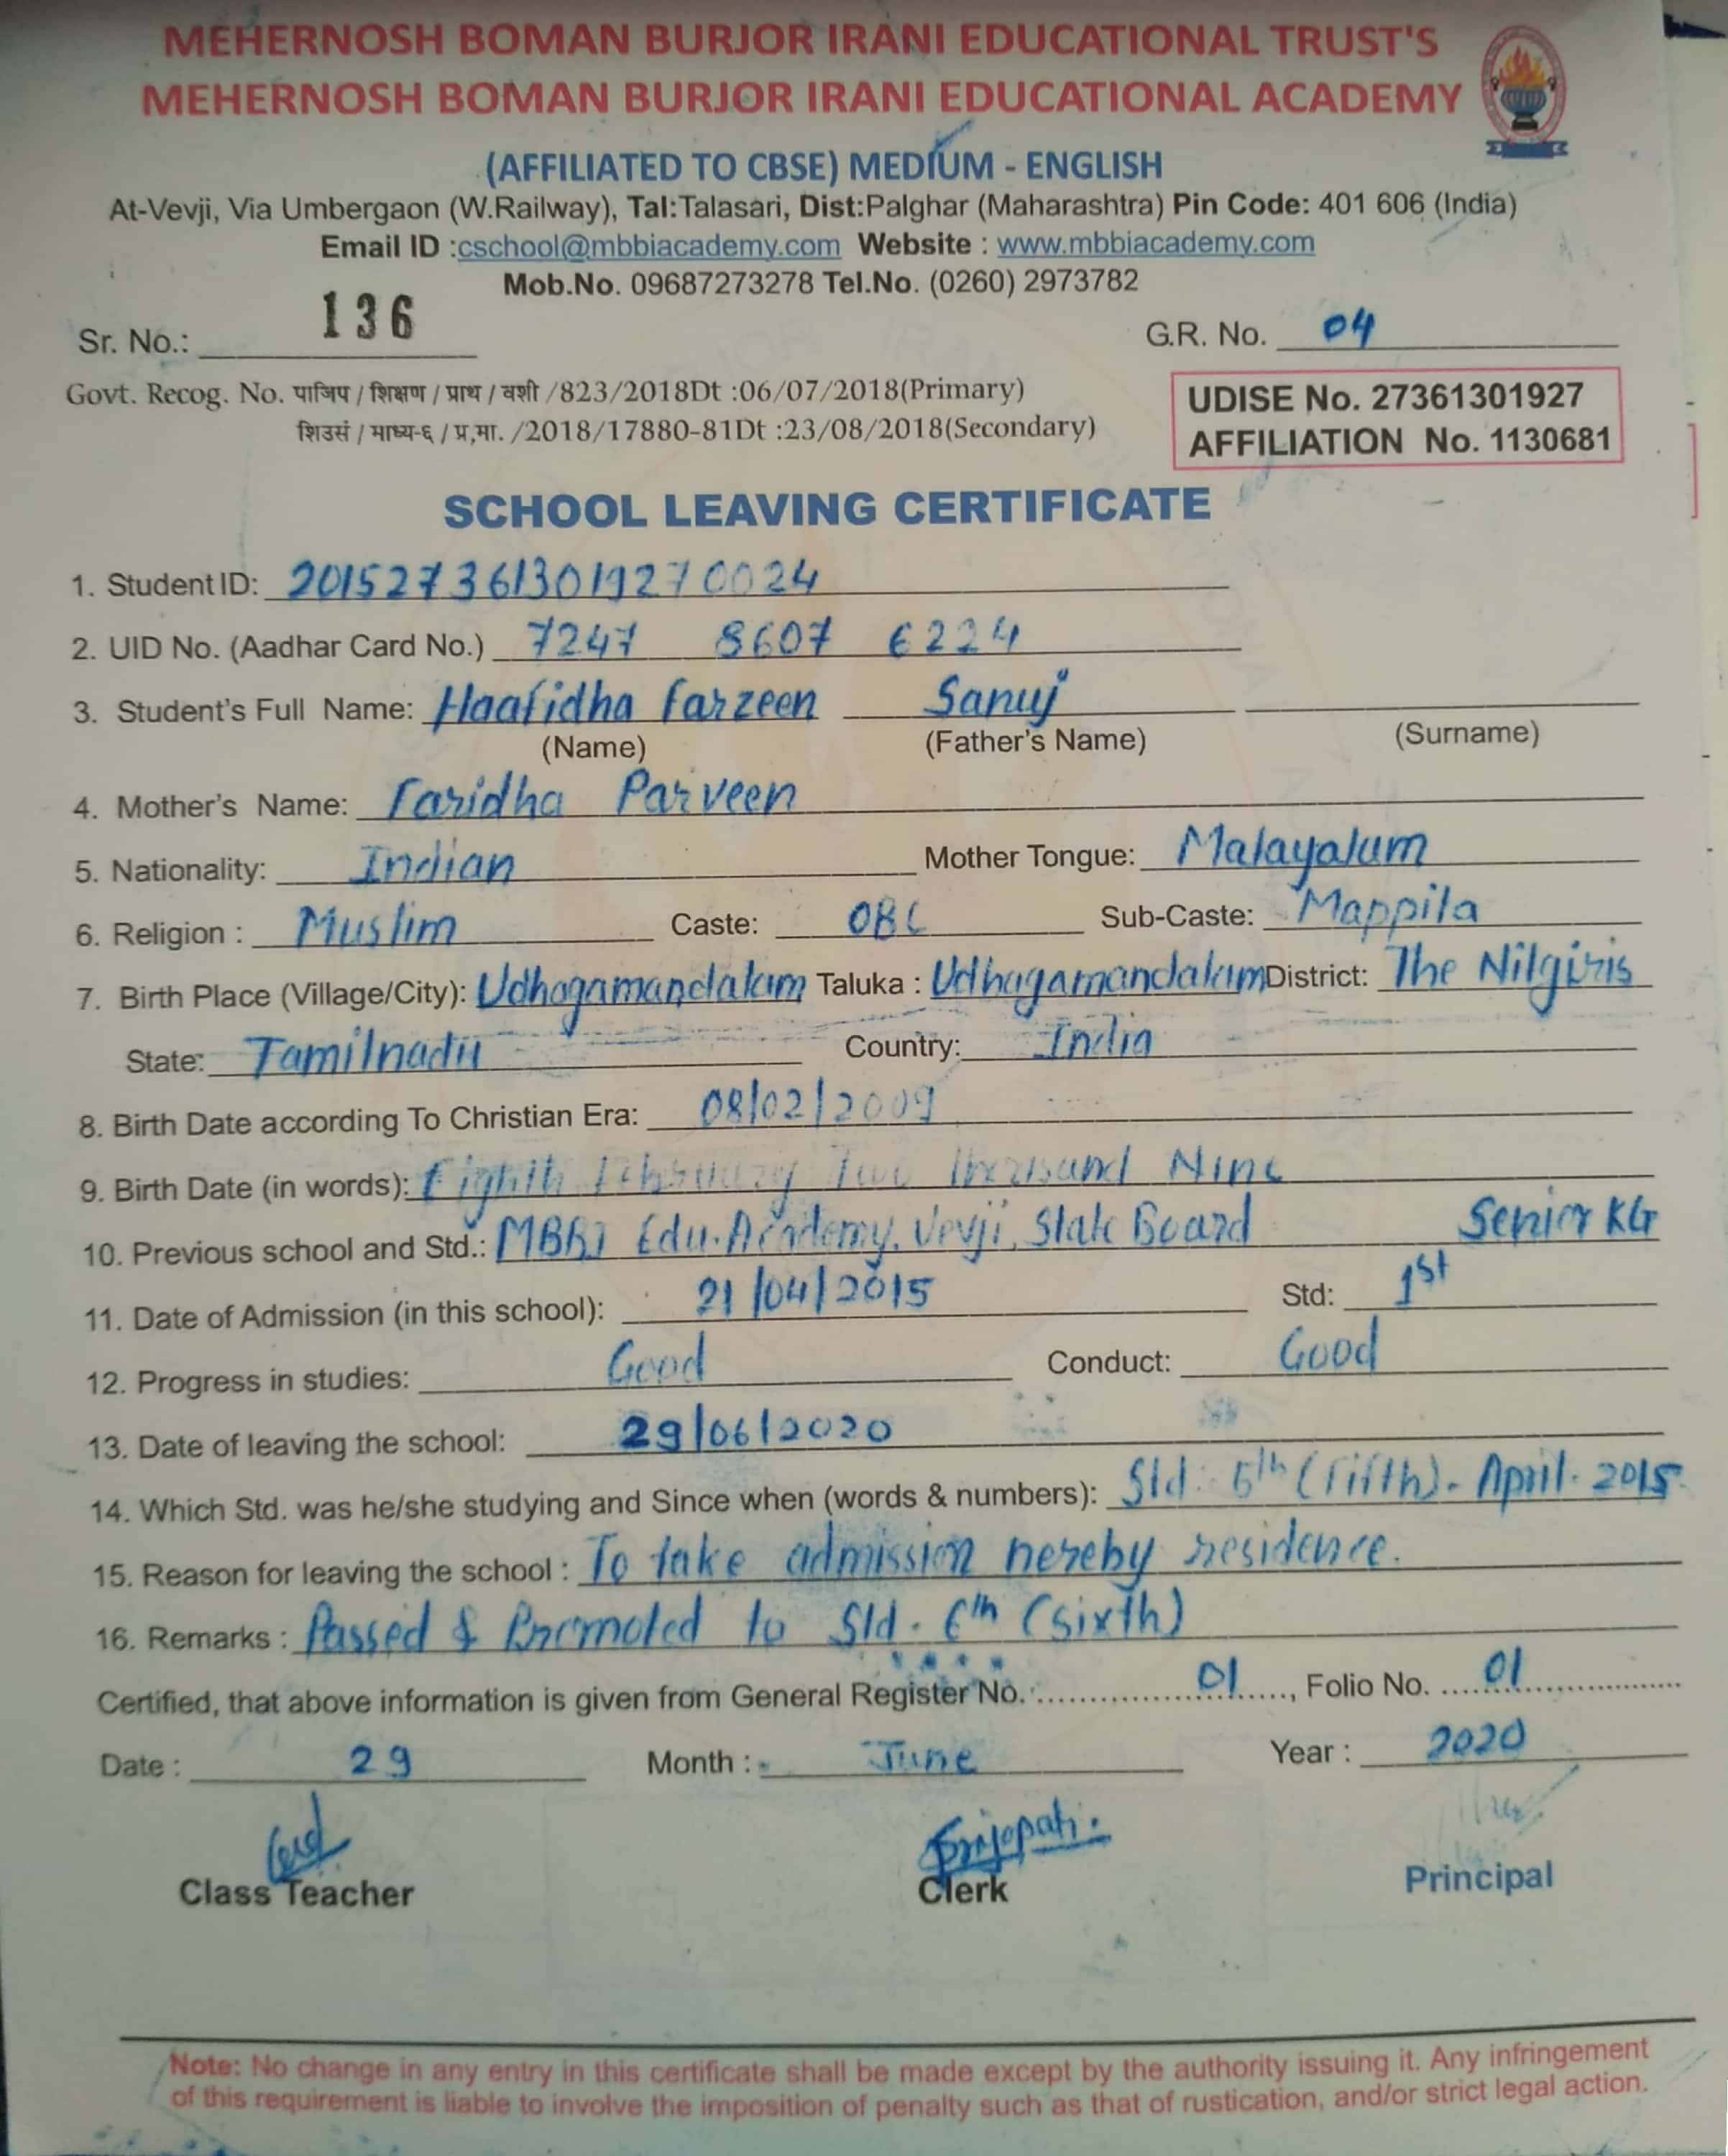 MEHERNOSH BOMAN BURJOR IRANI EDUCATIONAL TRUST'S
MEHERNOSH BOMAN BURJOR IRANI EDUCATIONAL ACADEMY
(AFFILIATED TO CBSE) MEDIUM - ENGLISH
At-Vevji, Via Umbergaon (W.Railway), Tal:Talasari, Dist:Palghar (Maharashtra) Pin Code: 401 606 (India)
Email ID :cschool@mbbiacademy.com Website : www.mbbiacademy.com
Mob.No. 09687273278 Tel.No. (0260) 2973782
Sr. No.: 136 G.R. No. 04
Govt. Recog. No. पाजिप / शिक्षण / प्राथ / वशी /823/2018Dt :06/07/2018(Primary)
शिउसं / माध्य-६ / प्र,मा. /2018/17880-81Dt :23/08/2018(Secondary)
UDISE No. 27361301927
AFFILIATION No. 1130681
SCHOOL LEAVING CERTIFICATE
1. Student ID: 2015273613019270024
2. UID No. (Aadhar Card No.) 7247 8607 6224
3. Student's Full Name: Haafidha Farzeen Sanuj
(Name) (Father's Name) (Surname)
4. Mother's Name: Faridha Parveen
5. Nationality: Indian Mother Tongue: Malayalum
6. Religion : Muslim Caste: OBC Sub-Caste: Mappila
7. Birth Place (Village/City): Udhagamandalam Taluka : Udhagamandalam District: The Nilgiris
State: Tamilnadu Country: India
8. Birth Date according To Christian Era: 08/02/2009
9. Birth Date (in words): Eighth February Two Thousand Nine
10. Previous school and Std.: MBBI Edu. Academy, Vevji, State Board Senior KG
11. Date of Admission (in this school): 21/04/2015 Std: 1st
12. Progress in studies: Good Conduct: Good
13. Date of leaving the school: 29/06/2020
14. Which Std. was he/she studying and Since when (words & numbers): Std. 5th (Fifth). April. 2015
15. Reason for leaving the school : To take admission nereby residence.
16. Remarks : Passed & Promoted to Std. 6th (sixth)
Certified, that above information is given from General Register No. 01, Folio No. 01
Date : 29 Month : June Year : 2020
Prajapati.
Class Teacher Clerk Principal
Note: No change in any entry in this certificate shall be made except by the authority issuing it. Any infringement
of this requirement is liable to involve the imposition of penalty such as that of rustication, and/or strict legal action.